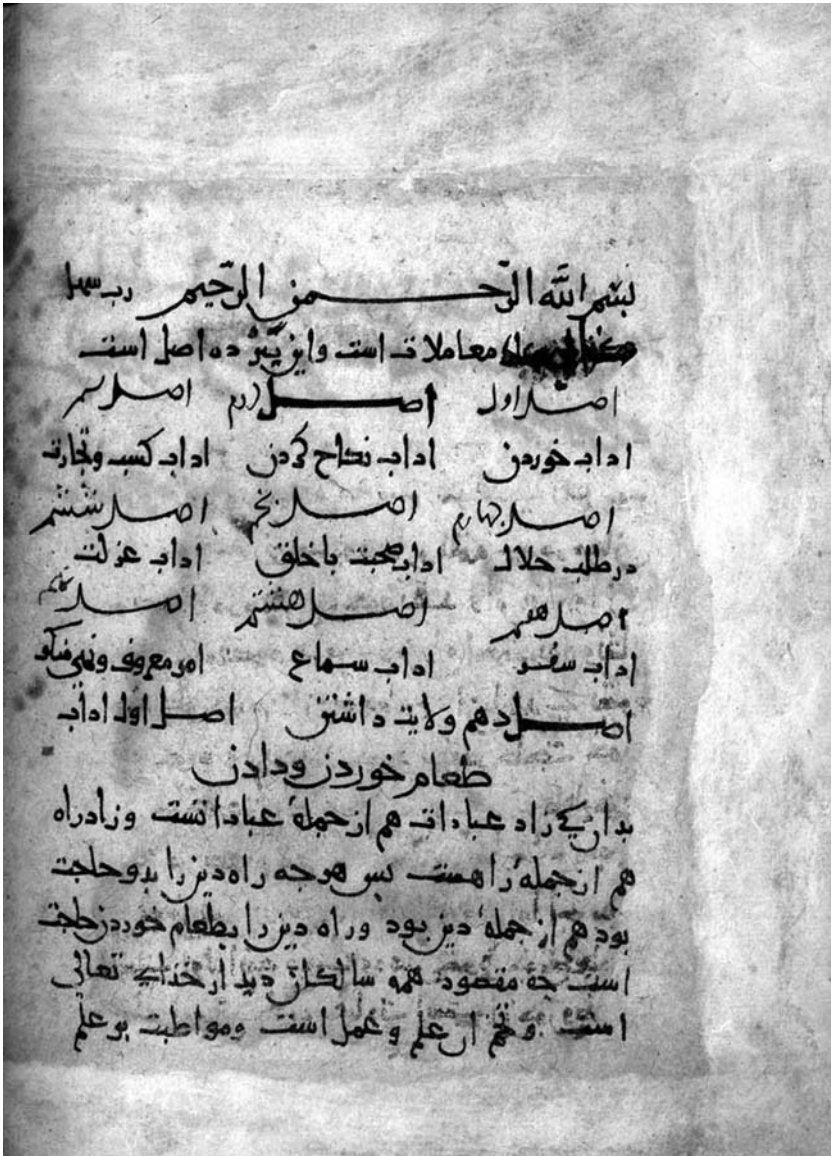 بسم الله الرحمن الرحیم رب سهل
معاملات است واین نیز ده اصل است
اصل اول اصل دوم اصل سیم
اداب خوردن اداب نکاح کردن اداب کسب وتجارت
اصل چهارم اصل پنجم اصل ششم
در طلب حلال اداب صحبت با خلق اداب عزلت
اصل هفتم اصل هشتم اصل نهم
اداب سفر اداب سماع امر معروف ونهی منکر
اصل دهم ولایت داشتن اصل اول اداب
طعام خوردن ودادن
بدان کی راه عبادات هم از جملهٔ عباداتست وزاد راه
هم از جملهٔ راهست بس هرجه راه دین را بدو حاجت
بود هم از جملهٔ دین بود وراه دین را بطعام خوردن حاجت
است جه مقصود همه سالکان دیدار خدای تعالی
است وتخم ان علم وعمل است ومواظبت بر علم